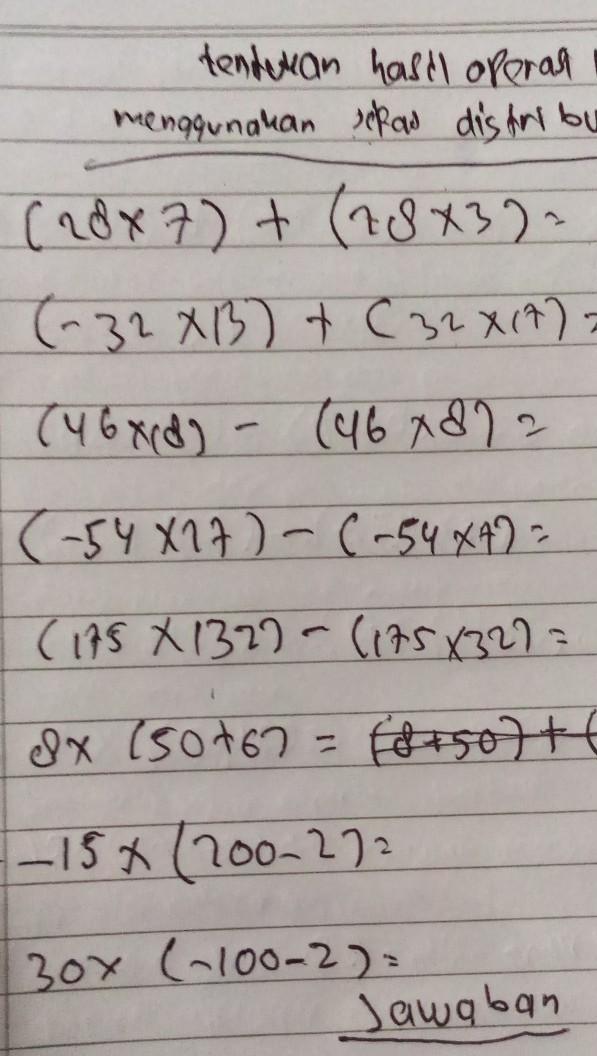 tentukan hasil operasi
menggunakan sifat distribu
(28 x 7) + (28 x 3) =
(-32 x 13) + (32 x 17) =
(46 x 18) - (46 x 8) =
(-54 x 27) - (-54 x 7) =
(175 x 132) - (175 x 32) =
8 x (50+6) = (8+50) + (
-15 x (200-2) =
30 x (-100-2) =
Jawaban